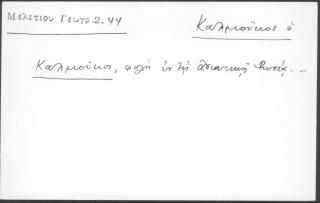 Μελετίου Γεωγρ. 2.44
Καλμοῦκος ὁ
Καλμοῦκοι, φυλὴ ἐν τῇ Ἀσιατικῇ Ῥωσίᾳ. –